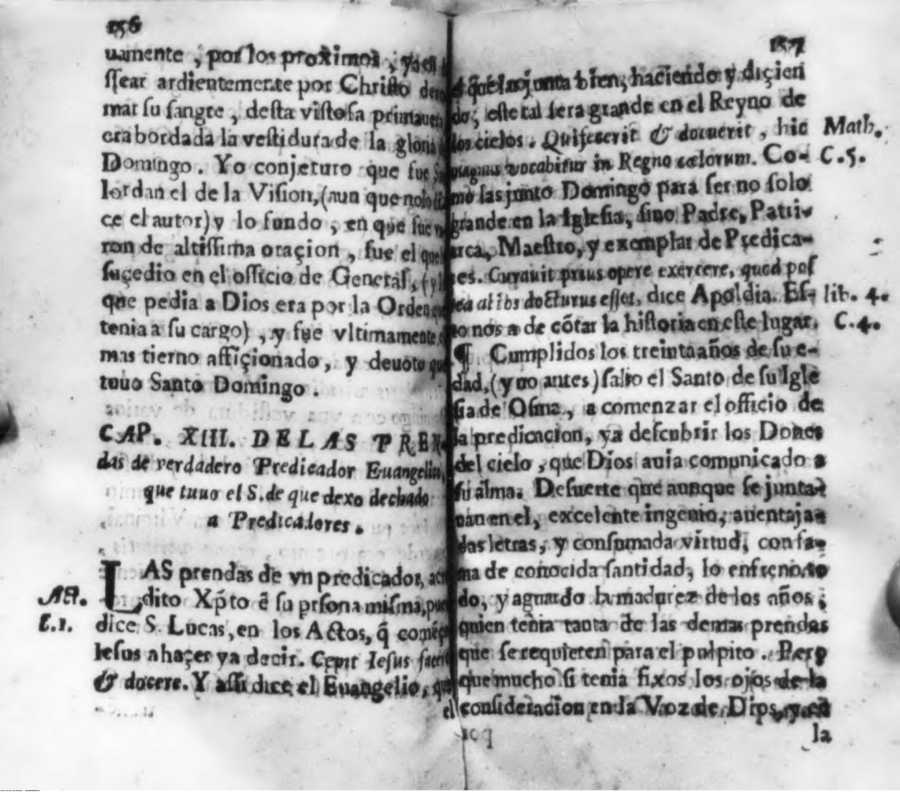 156
uamente, por los proximos, y
ssear ardientemente por Christo
mar su sangre, desta vistosa primauera
era bordada la vestidura de la gloria
Domingo. Yo conjeturo que fue
Iordan el de la Vision, (aun que nolo
ce el autor) y lo fundo, en que fue
ron de altissima oraçion, fue el que
suçedio en el officio de General, (y
que pedia a Dios era por la Orden
tenia a su cargo), y fue vltimamente,
mas tierno affiçionado, y deuoto que
touo Santo Domingo.
CAP. XIII. DE LAS PREN
das de verdadero Predicador Euangelin,
que tuuo el S. de que dexo dechado
a Predicadores.
LAS prendas de vn predicador,
Act. dito Xpto ē su prsona misma,
C.1. dice S. Lucas, en los Actos, q̃
Iesus a haçer ya decir. Cepit Iesus
& docere. Y assi dice el Euangelio, que
el
157
que las junta bien, haciendo y diçien
do; este tal sera grande en el Reyno de
los cielos. Qui fecerit & docuerit, hic Math.
magnus vocabitur in Regno cœlorum. Co- C.5.
mo las junto Domingo para ser no solo
grande en la Iglesia, sino Padre, Patri-
arca, Maestro, y exemplar de Predica-
es. Curauit prius opere exercere, quod pos
ea alios docturus esset, dice Apoldia. Es- lib. 4.
to nos a de cõtar la historia en este lugar. C.4.
¶ Cumplidos los treinta años de su e-
dad, (y no antes) salio el Santo de su Igle
sia de Osma, a comenzar el officio de
la predicacion, ya descubrir los Dones
del cielo, que Dios auia comunicado a
su alma. De suerte que aunque se junta-
uan en el, excelente ingenio, auentaja-
das letras, y consumada virtud, con fa-
ma de conocida santidad, lo enfreno to
do, y aguardo la madurez de los años,
quien tenia tanta de las demas prendas
que se requieren para el pulpito. Pero
que mucho si tenia fixos los ojos de la
consideracion en la Voz de Dios, y en
la